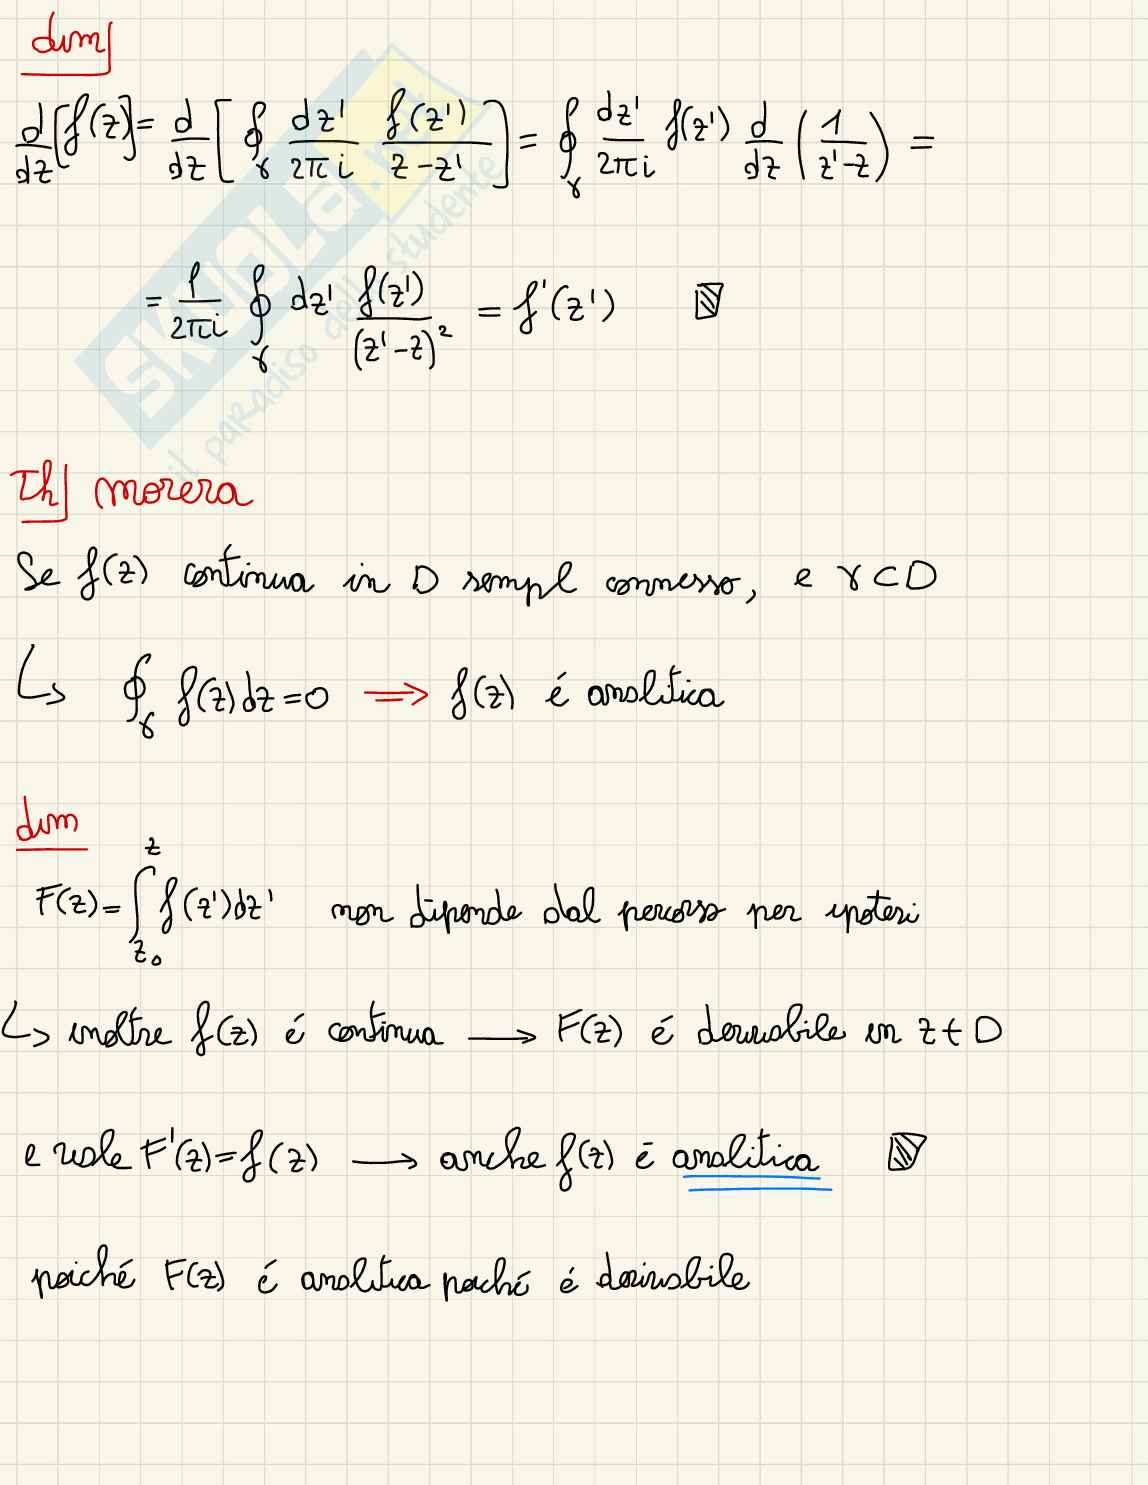 dim
d/dz [f(z)] = d/dz [ ∮_γ dz'/2πi f(z')/z-z' ] = ∮_γ dz'/2πi f(z') d/dz ( 1/z'-z ) =
= 1/2πi ∮_γ dz' f(z')/(z'-z)² = f'(z')
Th morera
Se f(z) continua in D sempl connesso, e γ⊂D
↳ ∮_γ f(z)dz=0 ⟹ f(z) é analitica
dim
F(z)=∫_{z₀}^{z} f(z')dz' non dipende dal percorso per ipotesi
↳ inoltre f(z) é continua → F(z) é derivabile in z ∈ D
e vale F'(z)=f(z) → anche f(z) é analitica
poiché F(z) é analitica poiché é derivabile
SKUOLA.net
il paradiso dello studente